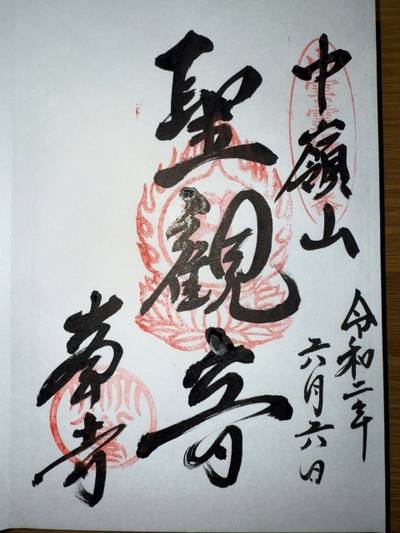 中嶺山
聖観音
峯寺
令和二年
六月六日